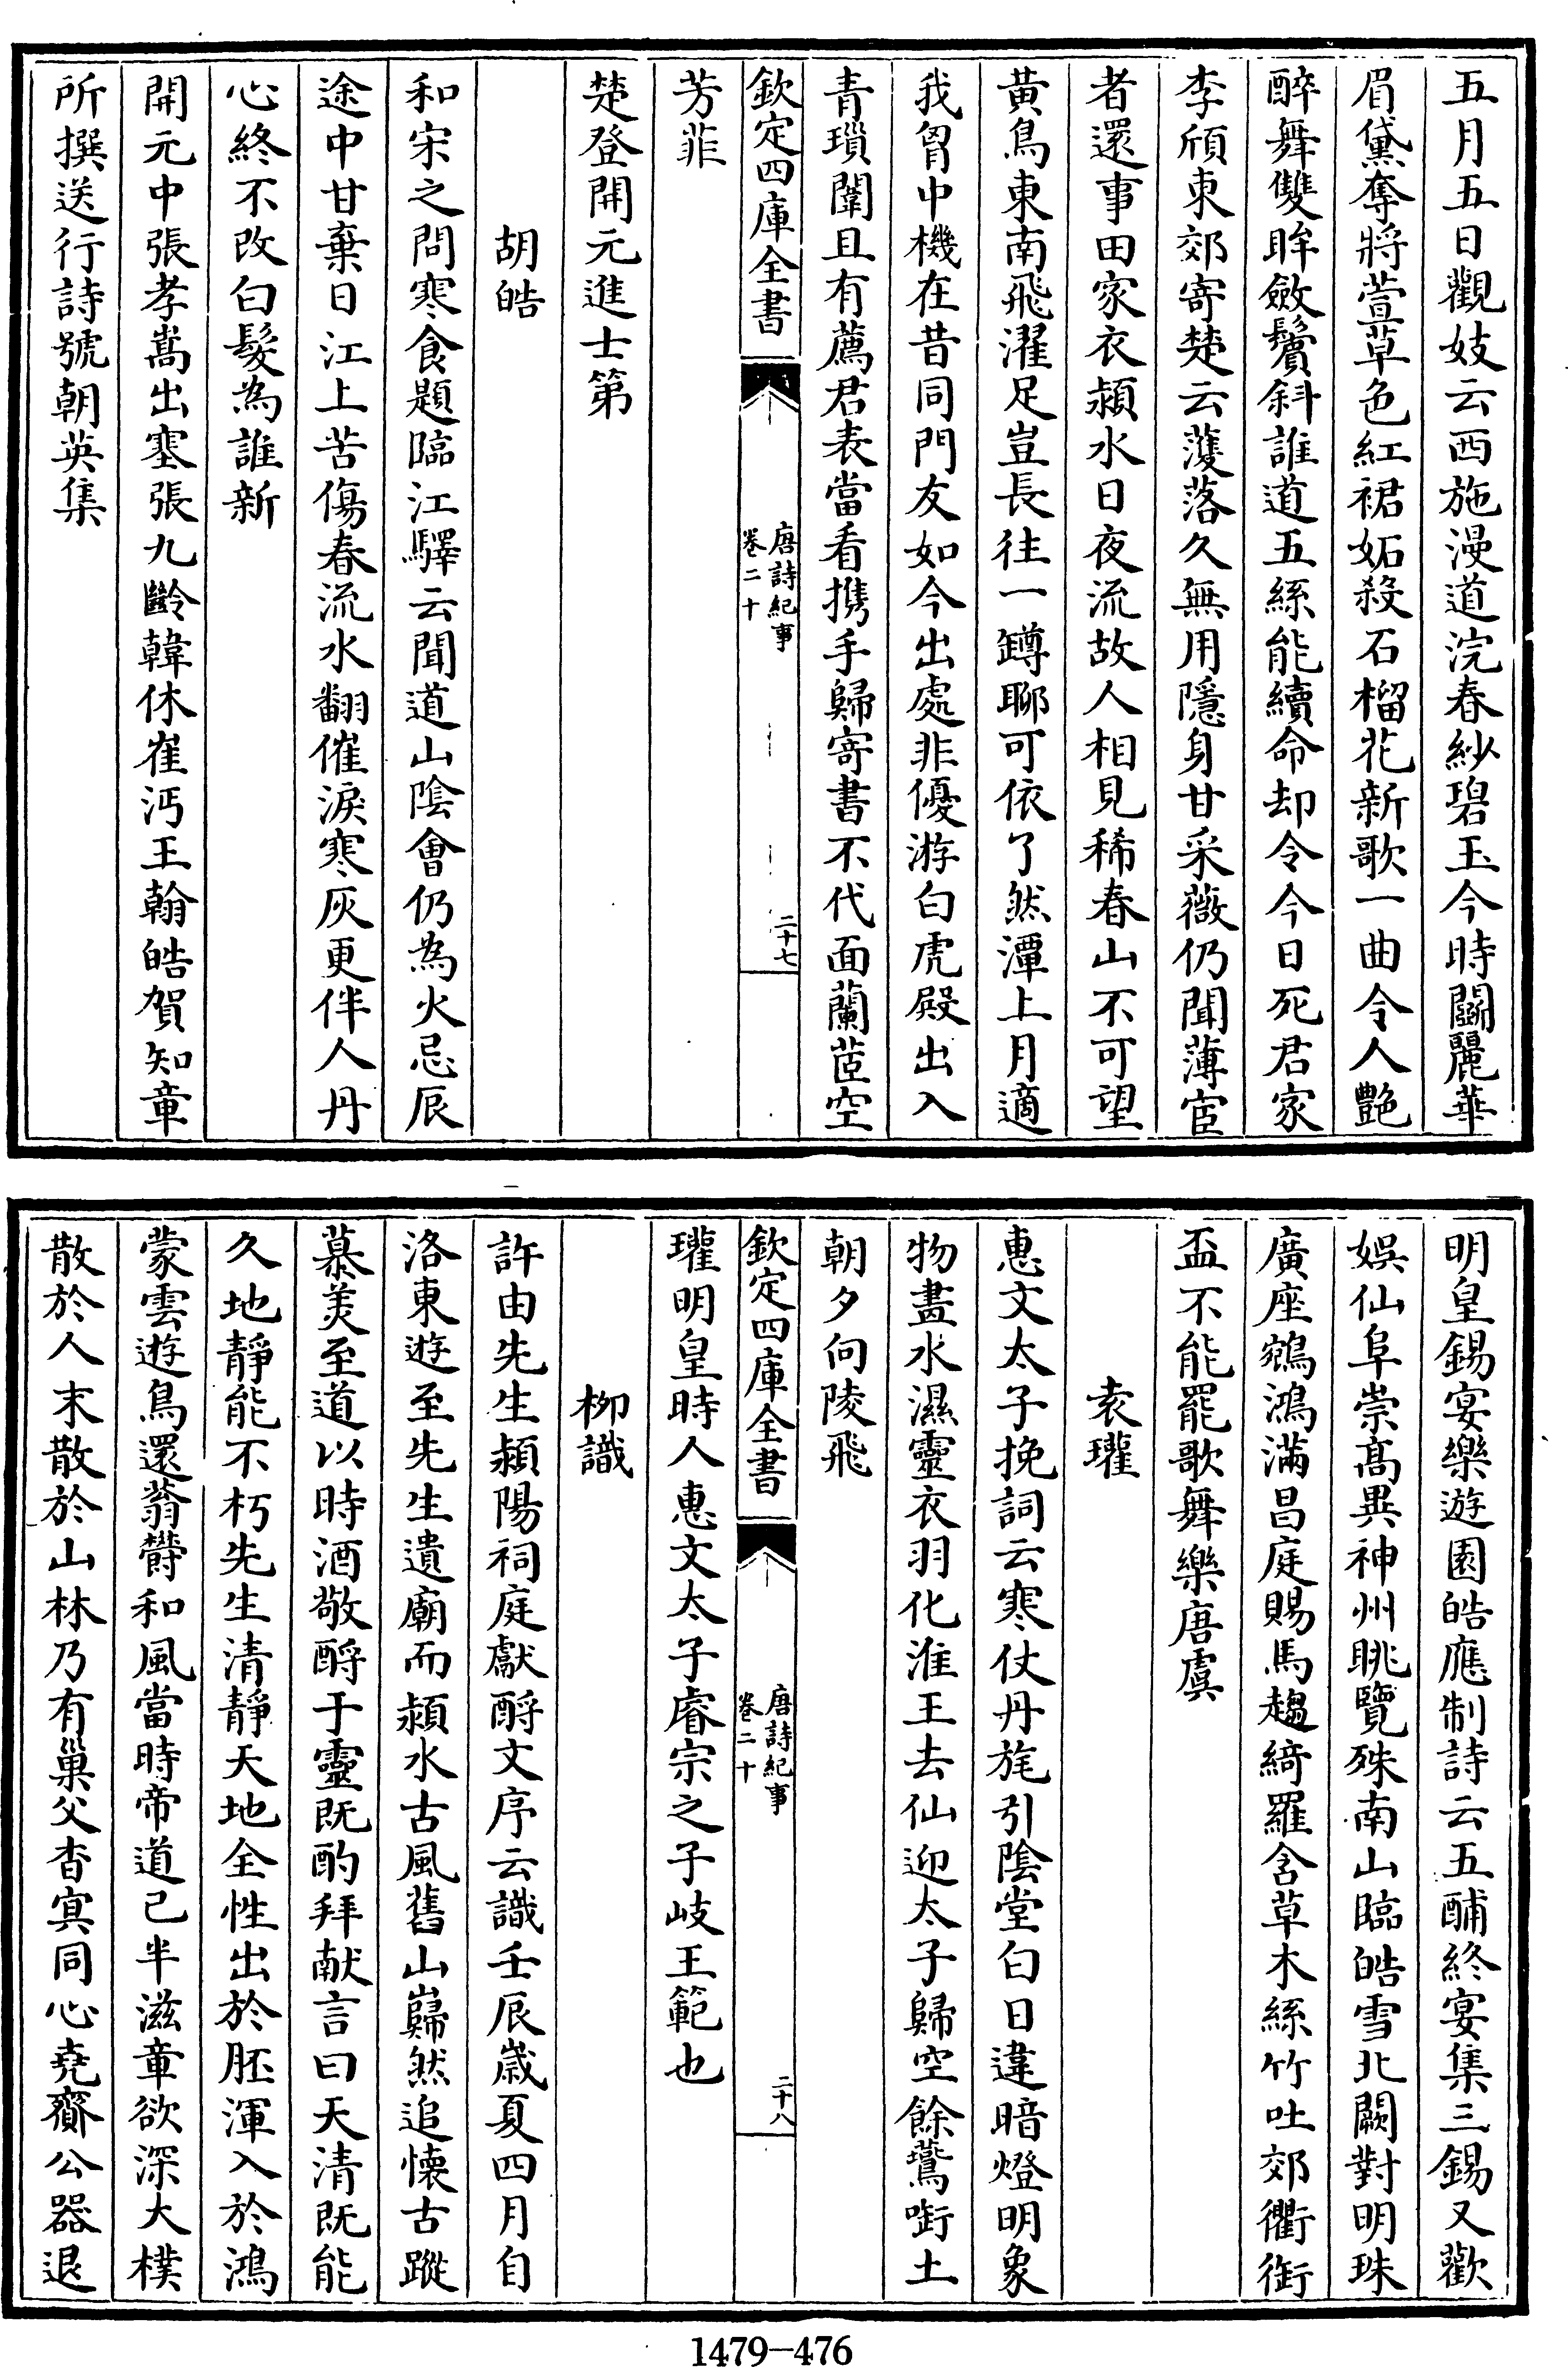 五月五日觀妓云西施漫道浣春紗碧玉今時鬭麗華
眉黛奪將萱草色紅裙妬殺石榴花新歌一曲令人艷
醉舞雙眸斂鬢斜誰道五絲能續命却令今日死君家
李頎東郊寄楚云蒦落久無用隱身甘采薇仍聞薄宦
者還事田家衣潁水日夜流故人相見稀春山不可望
黃鳥東南飛濯足豈長往一罇聊可依了然潭上月適
我胷中機在昔同門友如今出處非優游白虎殿出入
青瑣闈且有薦君表當看携手歸寄書不代面蘭茝空
欽定四庫全書
唐詩紀事
卷二十
二十七
芳菲
楚登開元進士第
胡皓
和宋之問寒食題臨江驛云聞道山陰會仍為火忌辰
途中甘棄日江上苦傷春流水翻催淚寒灰更伴人丹
心終不改白髮為誰新
開元中張孝嵩出塞張九齡韓休崔沔王翰皓賀知章
所撰送行詩號朝英集
明皇錫宴樂遊園皓應制詩云五酺終宴集三錫又歡
娛仙阜崇髙異神州眺覽殊南山臨皓雪北闕對明珠
廣座鵷鴻滿昌庭賜馬趨綺羅含草木絲竹吐郊衢銜
盃不能罷歌舞樂唐虞
袁瓘
惠文太子挽詞云寒仗丹旄引陰堂白日違暗燈明象
物畫水濕靈衣羽化淮王去仙迎太子歸空餘鸞啣土
朝夕向陵飛
欽定四庫全書
唐詩紀事
卷二十
二十八
瓘明皇時人惠文太子睿宗之子岐王範也
栁識
許由先生潁陽祠庭獻酹文序云識壬辰歲夏四月自
洛東遊至先生遺廟而潁水古風舊山巋然追懷古蹤
慕美至道以時酒敬酹于靈既酌拜献言曰天清既能
久地靜能不朽先生清靜天地全性出於胚渾入於鴻
蒙雲遊鳥還蓊欝和風當時帝道已半滋章欲深大樸
散於人末散於山林乃有巢父杳冥同心堯齎公器退
1479-476